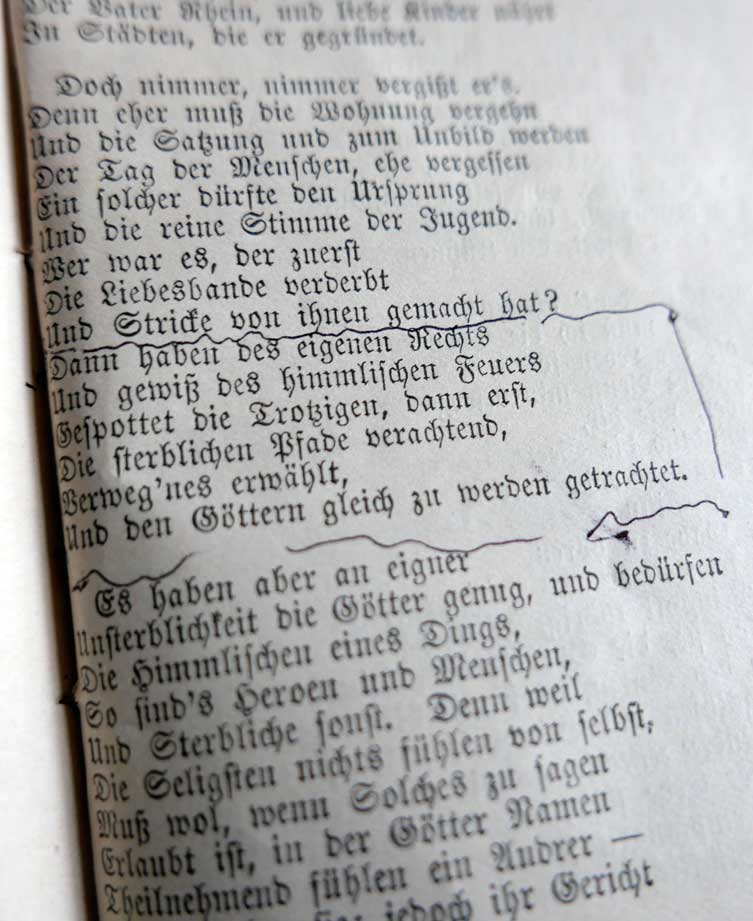 Der Vater Rhein, und liebe Kinder nährt
In Städten, die er gegründet.
Doch nimmer, nimmer vergißt er's.
Denn eher muß die Wohnung vergehn
Und die Satzung und zum Unbild werden
Der Tag der Menschen, ehe vergessen
Ein solcher dürfte den Ursprung
Und die reine Stimme der Jugend.
Wer war es, der zuerst
Die Liebesbande verderbt
Und Stricke von ihnen gemacht hat?
Dann haben des eigenen Rechts
Und gewiß des himmlischen Feuers
Gespottet die Trotzigen, dann erst,
Die sterblichen Pfade verachtend,
Verweg'nes erwählt,
Und den Göttern gleich zu werden getrachtet.
Es haben aber an eigner
Unsterblichkeit die Götter genug, und bedürfen
Die Himmlischen eines Dings,
So sind's Heroen und Menschen,
Und Sterbliche sonst. Denn weil
Die Seligsten nichts fühlen von selbst,
Muß wol, wenn Solches zu sagen
Erlaubt ist, in der Götter Namen
Theilnehmend fühlen ein Andrer —
jedoch ihr Gericht